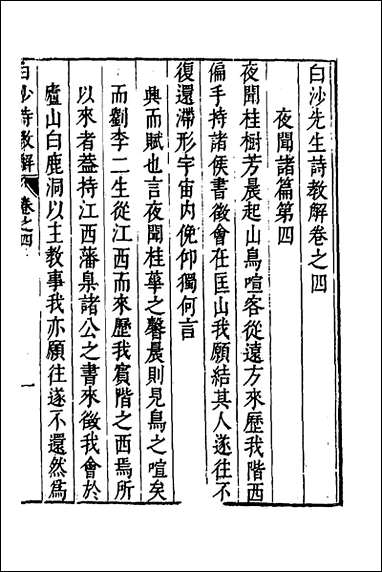 白沙先生詩教解卷之四
夜聞諸篇第四
夜聞桂樹芳晨起山鳥喧客從遠方來歷我階西
偏手持諸侯書徵會在匡山我願結其人遂往不
復還滯形宇宙內俛仰獨何言
興而賦也言夜聞桂華之馨晨則見鳥之喧矣
而劉李二生從江西而來歷我賓階之西焉所
以來者葢持江西藩臬諸公之書來徵我會於
廬山白鹿洞以主教事我亦願往遂不還然爲
白沙詩教解 卷之四 一